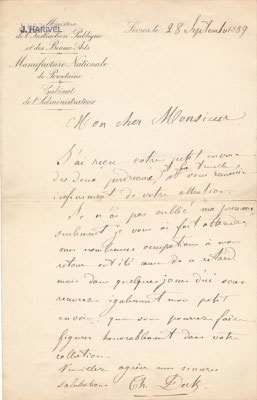 J. HARIVEL
Ministère
de l'Instruction Publique
et des Beaux-Arts
Manufacture Nationale
de Porcelaine
Cabinet
de l'Administrateur
Sèvres le 28 Septembre 1889
Mon cher Monsieur
J'ai reçu votre petit envoi
des deux et vous remercie
infiniment de votre attention.
Je n'ai pas oublié ma promesse
seulement je vous ai fait attendre
mes nombreuses occupations à mon
retour ont été cause de ce retard.
mais dans quelques jours d'ici vous
recevrez également mon petit
envoi, que vous pourrez faire
figurer honorablement dans votre
collection.
Veuillez agréer mes sincères
salutations Ch.